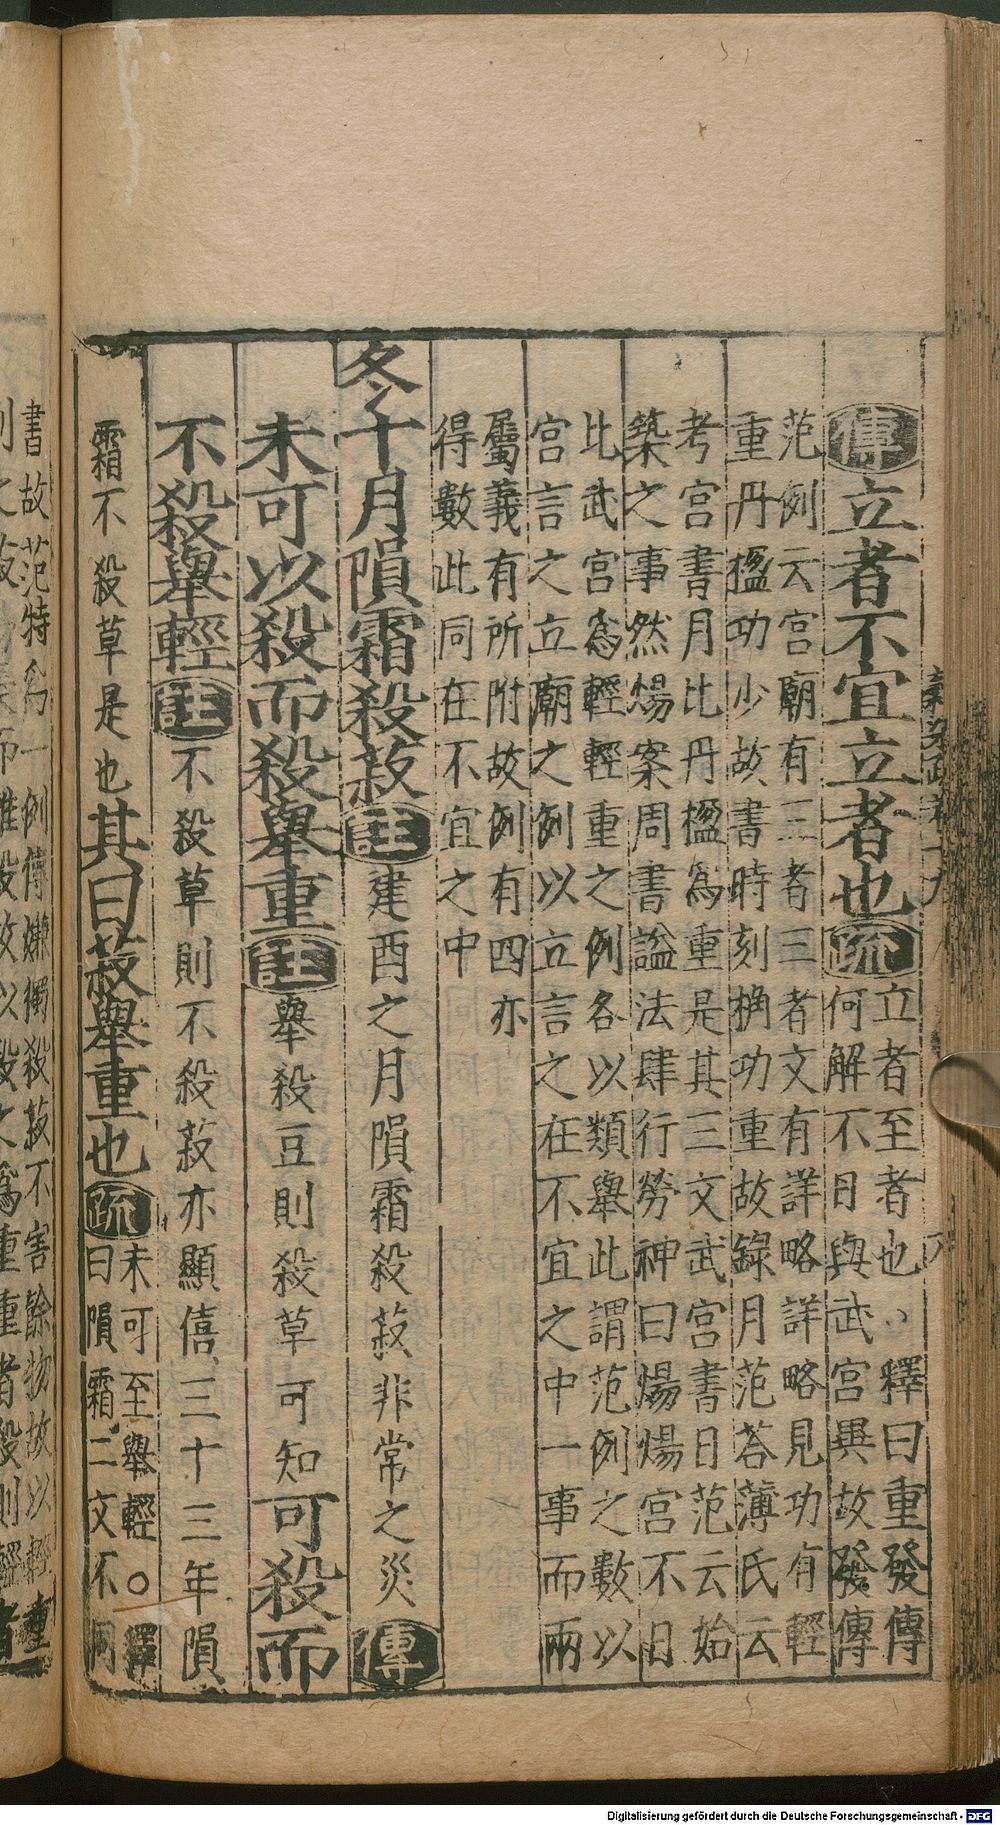 傳立者不宜立者也疏立者至者也、釋曰重發傳
何解不日與武宮異故發傳
范例云宮廟有三者三者文有詳略詳略見功有輕
重丹楹功少故書時刻桷功重故錄月范荅薄氏云
考宮書月比丹楹爲重是其三文武宮書日范云始
築之事然煬案周書謚法肆行勞神曰煬煬宮不日
比武宮爲輕輕重之例各以類舉此謂范例之數以
宮言之立廟之例以立言之在不宜之中一事而兩
屬義有所附故例有四亦
得數此同在不宜之中
冬十月隕霜殺菽註建酉之月隕霜殺菽非常之災傳
未可以殺而殺舉重註舉殺豆則殺草可知可殺而
不殺舉輕註不殺草則不殺菽亦顯僖三十三年隕
霜不殺草是也其曰菽舉重也疏未可至舉輕○釋
曰隕霜二文不同
書故范特爲一例傳嫌獨殺菽不害餘物故以輕重
Digitalisierung gefördert durch die Deutsche Forschungsgemeinschaft - DFG